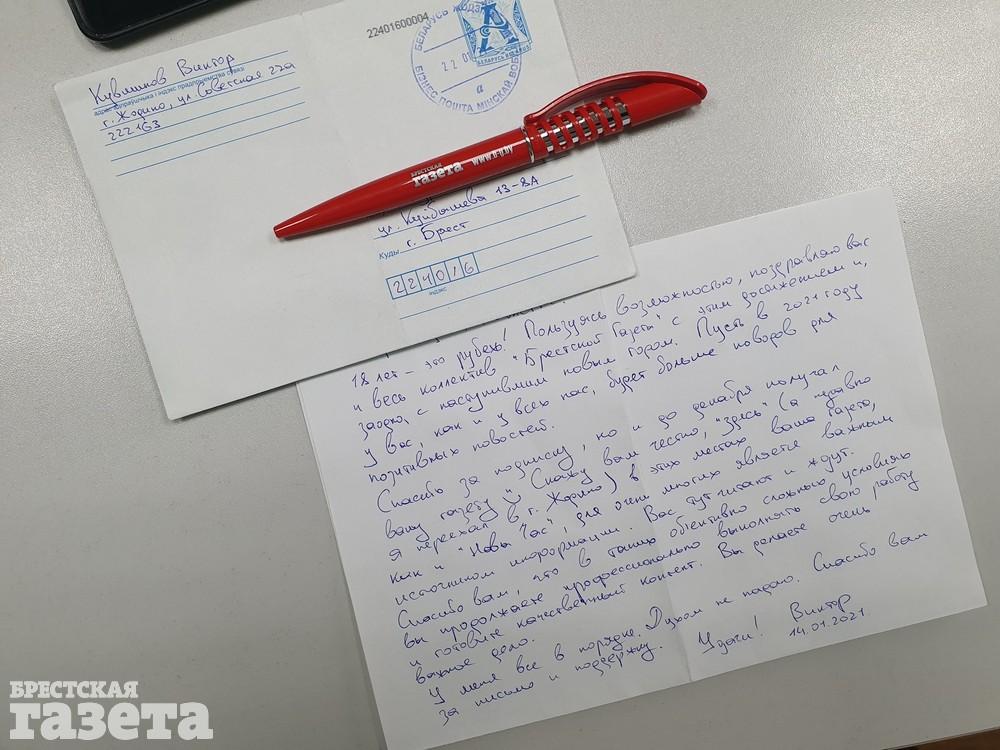 22401600004
БЕЛАРУСЬ ЖОДЗІ
22 01
а
БІЗНЕС ПОШТА МІНСКАЙ ВОБЛ
Кувшинов Виктор
адрас адпраўшчыка і індэкс прадпрыемства сувязі
г. Жодино, ул. Советская 22а
222163
БРЕСТСКАЯ
газета www.b-g.by
ул. Куйбышева 13-8А
Куды г. Брест
224016
індэкс
18 лет – это рубеж! Пользуясь возможностью, поздравляю вас
и весь коллектив "Брестской Газеты" с этим достижением и,
заодно, с наступившим новым годом. Пусть в 2021 году
у вас, как и у всех нас, будет больше поводов для
позитивных новостей.
Спасибо за подписку, но и до декабря получал
вашу газету Скажу вам честно, "здесь" (а недавно
я переехал в г. Жодино) в этих местах ваша газета,
как и "Новы Час", для очень многих является важным
источником информации. Вас тут читают и ждут.
Спасибо вам, что в таких объективно сложных условиях
вы продолжаете профессионально выполнять свою работу
и готовите качественный контент. Вы делаете очень
важное дело.
У меня все в порядке. Духом не падаю. Спасибо вам
за письмо и поддержку.
Удачи! Виктор
14.01.2021.
БРЕСТСКАЯ
газета